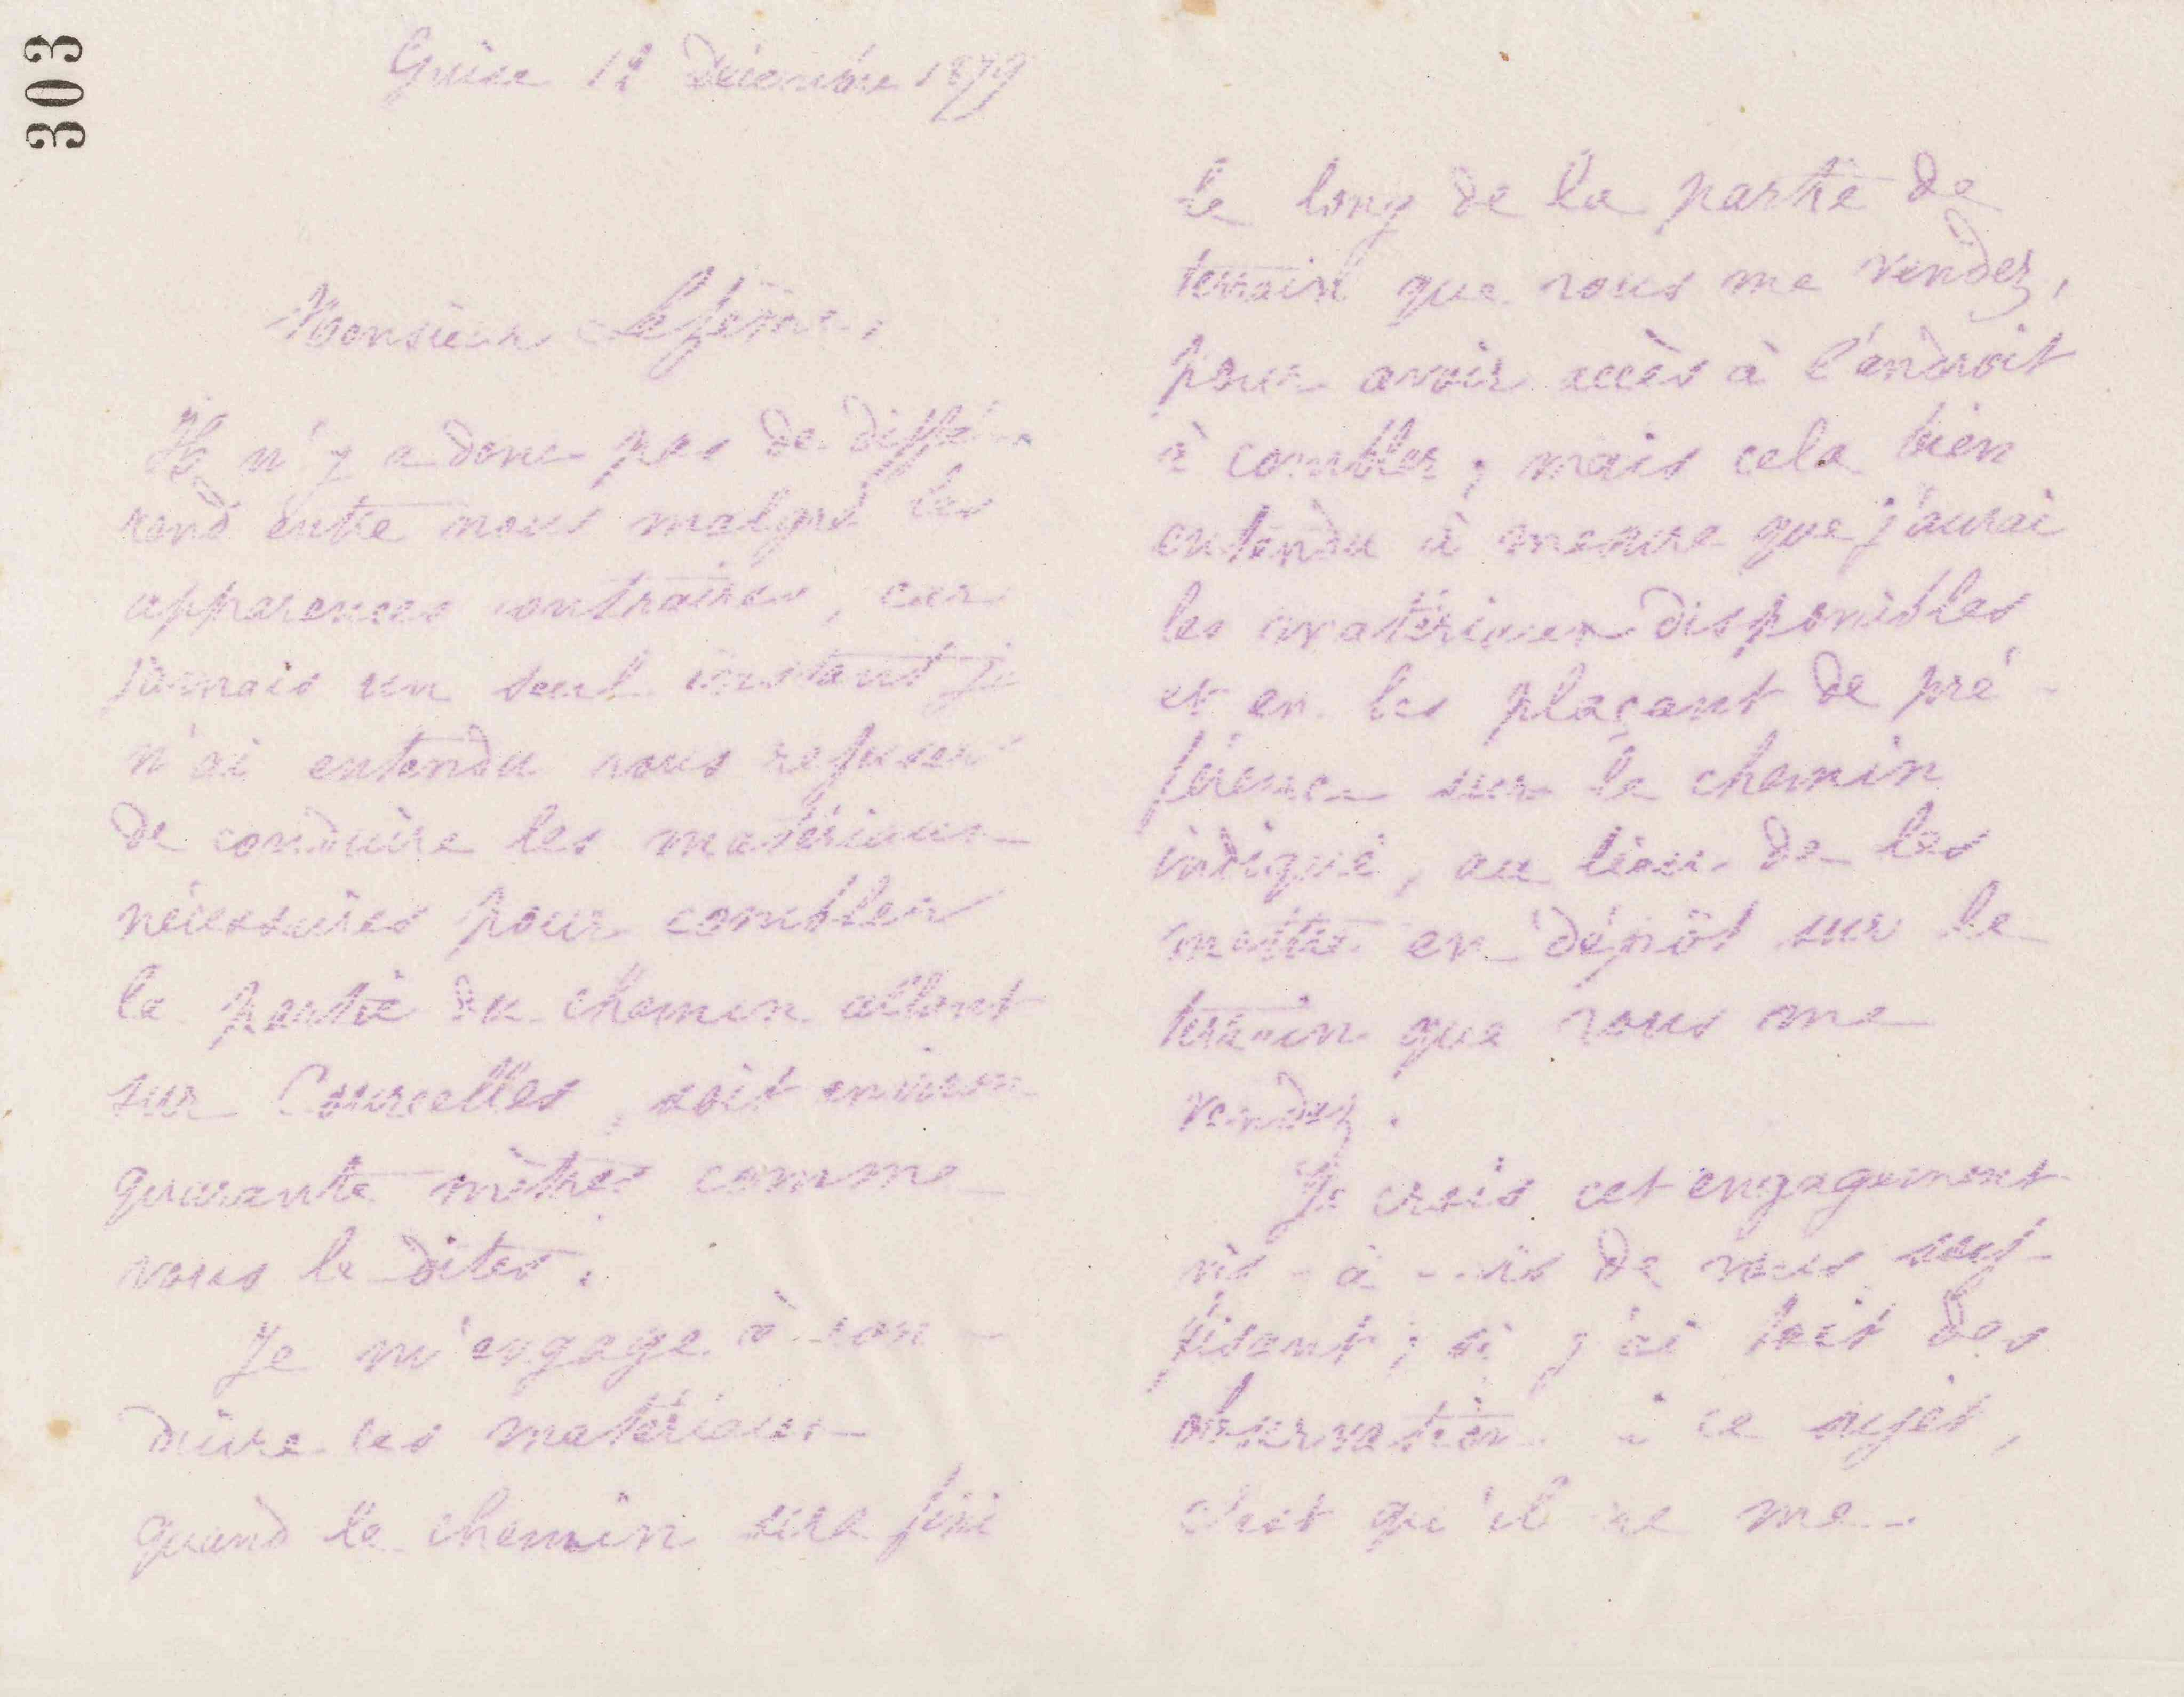 303
Guise 12 Décembre 1879
Monsieur Lefèvre,
Il n'y a donc pas de diffé-
rend entre nous malgré les
apparences contraires, car
jamais un seul instant je
n'ai entendu vous refuser
de conduire les matériaux
nécessaires pour combler
la partie du chemin allant
sur Courcelles, soit environ
quarante mètres comme
vous le dites.
Je m'engage à con-
duire ces matériaux
quand le chemin sera fini
le long de la partie de
terrain que vous me vendez,
pour avoir accès à l'endroit
à combler ; mais cela bien
entendu à mesure que j'aurai
les matériaux disponibles
et en les plaçant de pré-
férence sur le chemin
indiqué, au lieu de les
mettre en dépôt sur le
terrain que vous me
vendez.
Je crois cet engagement
vis-à-vis de vous suf-
fisant ; si j'ai fait des
observation à ce sujet,
c'est qu'il ne me